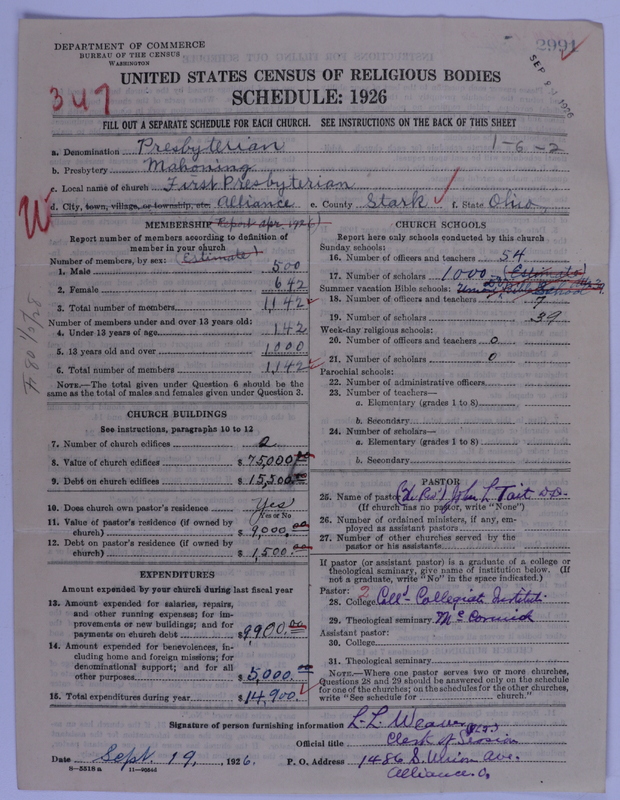 DEPARTMENT OF COMMERCE
BUREAU OF THE CENSUS
WASHINGTON
2991
UNITED STATES CENSUS OF RELIGIOUS BODIES
SCHEDULE: 1926
347
FILL OUT A SEPARATE SCHEDULE FOR EACH CHURCH. SEE INSTRUCTIONS ON THE BACK OF THIS SHEET
a. Denomination Presbyterian 1-6-2
b. Presbytery Mahoning
c. Local name of church First Presbyterian
d. City, town, village, or township, etc. Alliance e. County Stark f. State Ohio
W
MEMBERSHIP Report Apr. 1926
Report number of members according to definition of
member in your church
Number of members, by sex: (Estimate)
1. Male 500
2. Female 642
3. Total number of members 1,142
Number of members under and over 13 years old:
4. Under 13 years of age 142
5. 13 years old and over 1000
6. Total number of members 1,142
NOTE.—The total given under Question 6 should be the
same as the total of males and females given under Question 3.
CHURCH BUILDINGS
See instructions, paragraphs 10 to 12
7. Number of church edifices 2
8. Value of church edifices $ 75,000.00
9. Debt on church edifices $ 15,500.00
10. Does church own pastor's residence Yes
Yes or No
11. Value of pastor's residence (if owned by
church) $ 9000.00
12. Debt on pastor's residence (if owned by
church) $ 1,500.00
EXPENDITURES
Amount expended by your church during last fiscal year
13. Amount expended for salaries, repairs,
and other running expenses; for im-
provements or new buildings; and for
payments on church debt $ 9900.00
14. Amount expended for benevolences, in-
cluding home and foreign missions; for
denominational support; and for all
other purposes $ 5,000.00
15. Total expenditures during year $ 14,900.
CHURCH SCHOOLS
Report here only schools conducted by this church
Sunday schools:
16. Number of officers and teachers 54
17. Number of scholars 1000 (Estimate)
Summer vacation Bible schools:
18. Number of officers and teachers 7
19. Number of scholars 39
Week-day religious schools:
20. Number of officers and teachers 0
21. Number of scholars 0
Parochial schools:
22. Number of administrative officers
23. Number of teachers—
a. Elementary (grades 1 to 8)
b. Secondary
24. Number of scholars—
a. Elementary (grades 1 to 8)
b. Secondary
PASTOR
25. Name of pastor (The Rev.) John L. Tait D.D.
(If church has no pastor, write "None")
26. Number of ordained ministers, if any, em-
ployed as assistant pastors
27. Number of other churches served by the
pastor or his assistants
If pastor (or assistant pastor) is a graduate of a college or
theological seminary, give name of institution below. (If
not a graduate, write "No" in the space indicated.)
Pastor: 2
28. College Coll'd Collegiate Institute
29. Theological seminary McCormick
Assistant pastor:
30. College
31. Theological seminary
NOTE.—Where one pastor serves two or more churches,
Questions 28 and 29 should be answered only on the schedule
for one of the churches; on the schedules for the other churches,
write "See schedule for church."
Signature of person furnishing information L. L. Weaver
Official title Clerk of Session
Date Sept. 19, 1926. P. O. Address 1486 S. Union Ave.
Alliance, O.
8—5518 a